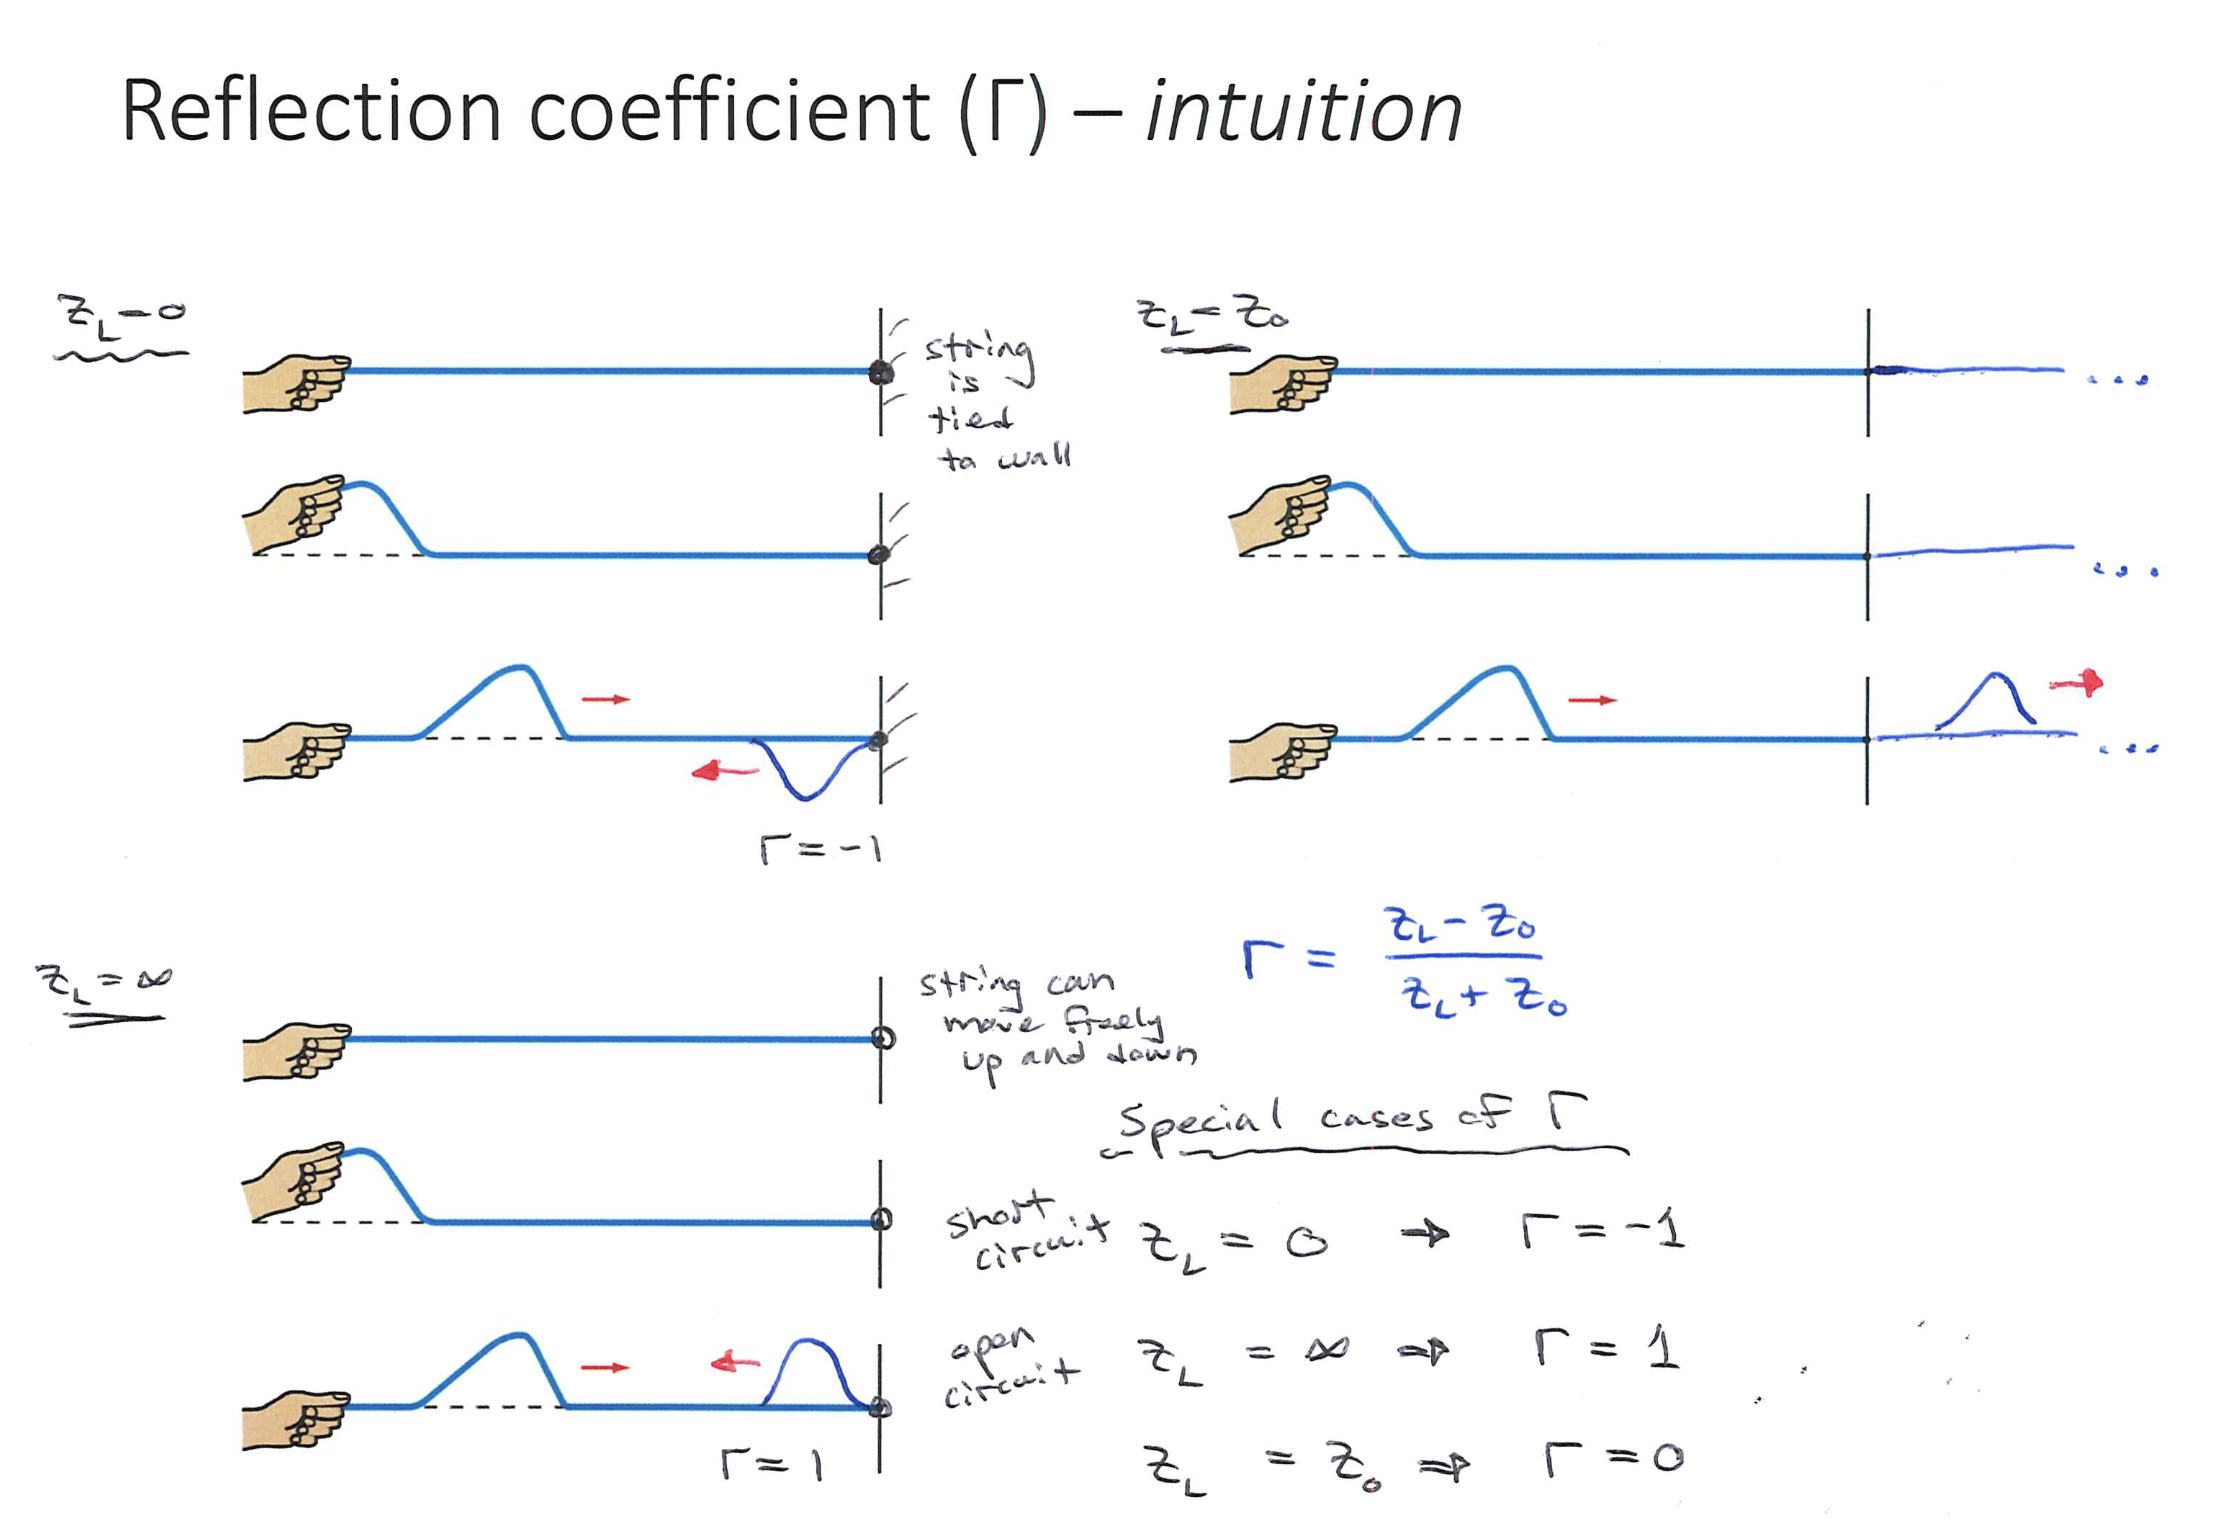 Reflection coefficient (Γ) – intuition
Z_L = 0
string
is
tied
to wall
Γ = -1
Z_L = Z_0
...
...
...
Z_L = ∞
string can
move freely
up and down
Γ = 1
Γ = (Z_L - Z_0) / (Z_L + Z_0)
Special cases of Γ
short circuit Z_L = 0 → Γ = -1
open circuit Z_L = ∞ ⇒ Γ = 1
Z_L = Z_0 ⇒ Γ = 0